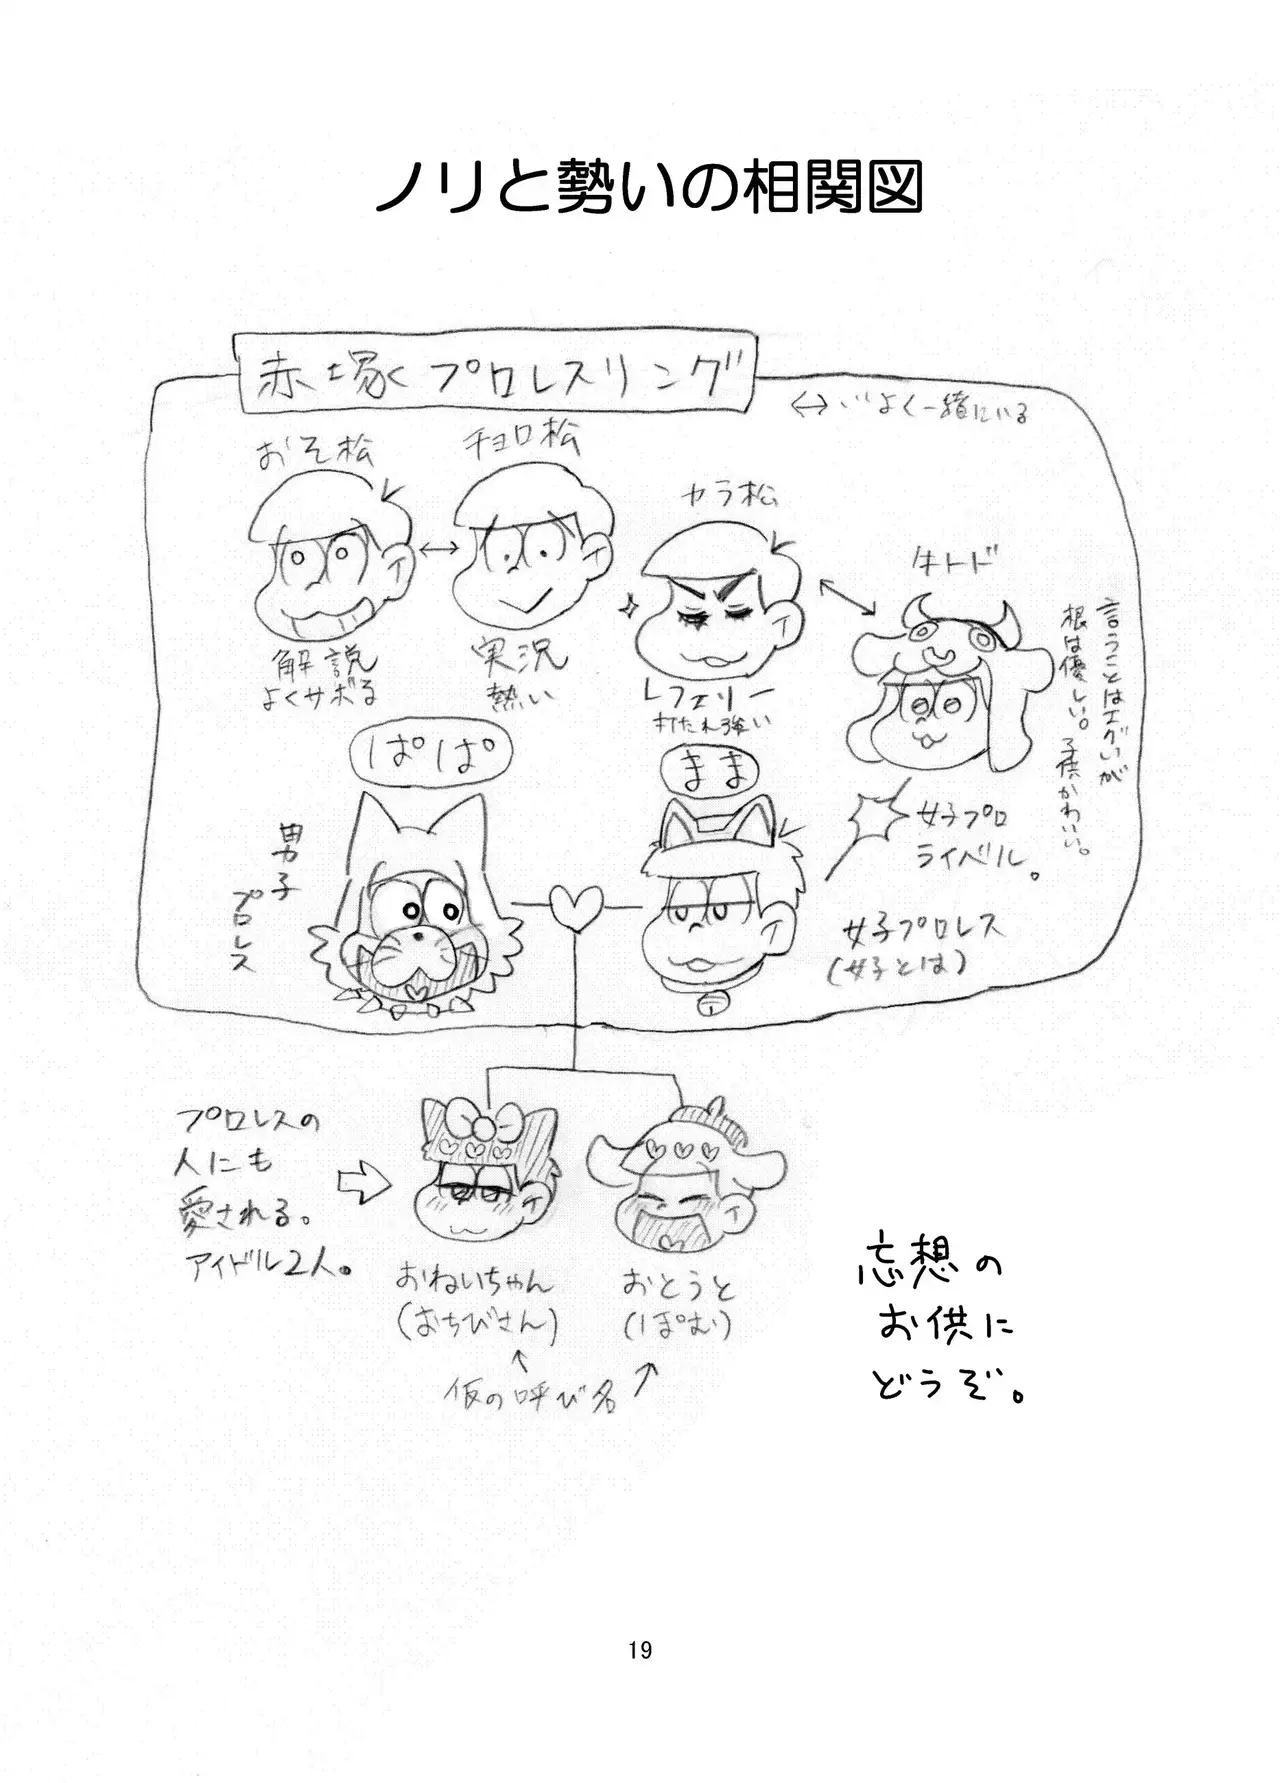 ノリと勢いの相関図
赤塚プロレスリング
↔…よく一緒にいる
おそ松
チョロ松
カラ松
牛トド
解説
よくサボる
実況
熱い
レフェリー
打たれ強い
言うことはエグいが
根は優しい。子供かわいい。
ぱぱ
まま
男子
プロレス
女子プロ
ライバル。
女子プロレス
(女子とは)
プロレスの
人にも
愛される。
アイドル2人。
おねいちゃん
(おちびさん)
おとうと
(ぽむ)
仮の呼び名
忘想の
お供に
どうぞ。
19